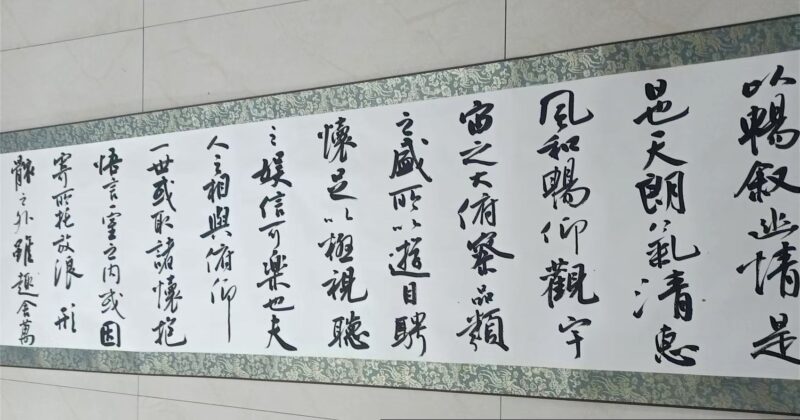 以暢敘幽情是
日也天朗氣清惠
風和暢仰觀宇
宙之大俯察品類
之盛所以遊目騁
懷足以極視聽
之娛信可樂也夫
人之相與俯仰
一世或取諸懷抱
悟言室之內或因
寄所托放浪形
骸之外雖趣舍萬